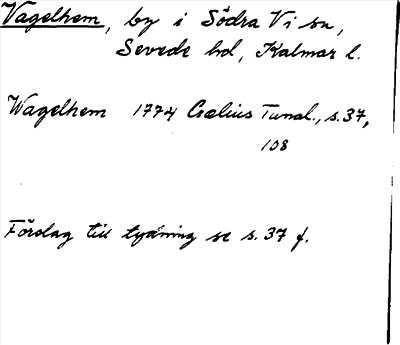 Vagelhem, by i Södra Vi sn,
Sevede hd, Kalmar l.
Wagelhem 1774 Cælius Tunal., s. 37,
108
Förslag till tydning se s. 37 f.